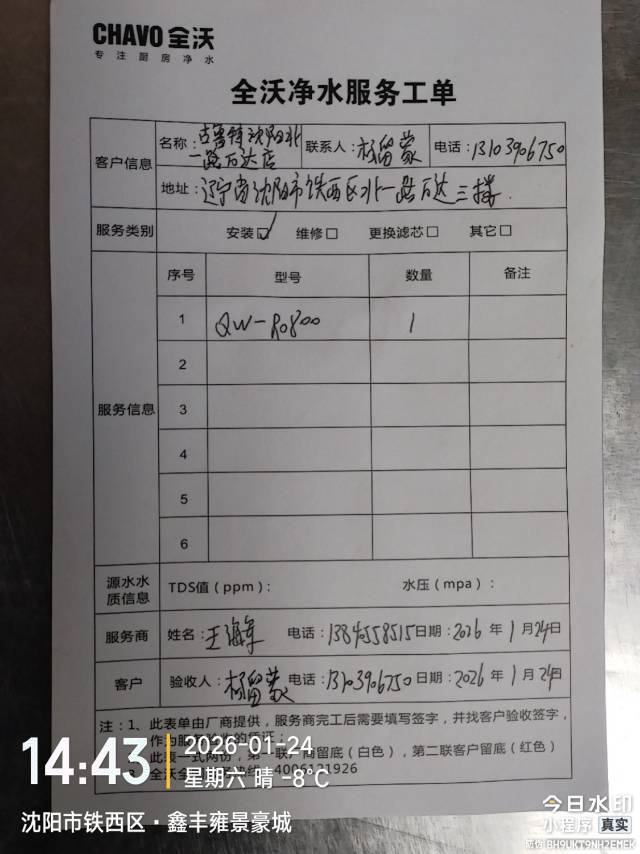 CHAVO 全沃
专注厨房净水
全沃净水服务工单
客户信息
名称：古鲁特沈阳北一路万达店
联系人：杨留蒙
电话：13103906750
地址：辽宁省沈阳市铁西区北一路万达三楼
服务类别
安装☑ 维修□ 更换滤芯□ 其它□
服务信息
序号 型号 数量 备注
1 QW-RO800 1
2
3
4
5
6
源水水质信息
TDS值（ppm）： 水压（mpa）：
服务商 姓名：王海军 电话：13840558515 日期：2026 年 1 月 24 日
客户 验收人：杨留蒙 电话：13103906750 日期：2026 年 1 月 24 日
注：1、此表单由厂商提供，服务商完工后需要填写签字，并找客户验收签字，
作为服务验收的凭证；
此表一式两份，第一联厂商留底（白色），第二联客户留底（红色）
4006121926
14:43
2026-01-24
星期六 晴 -8℃
沈阳市铁西区·鑫丰雍景豪城
今日水印
小程序 真实
防伪 BH9UKT9NH2EMEK